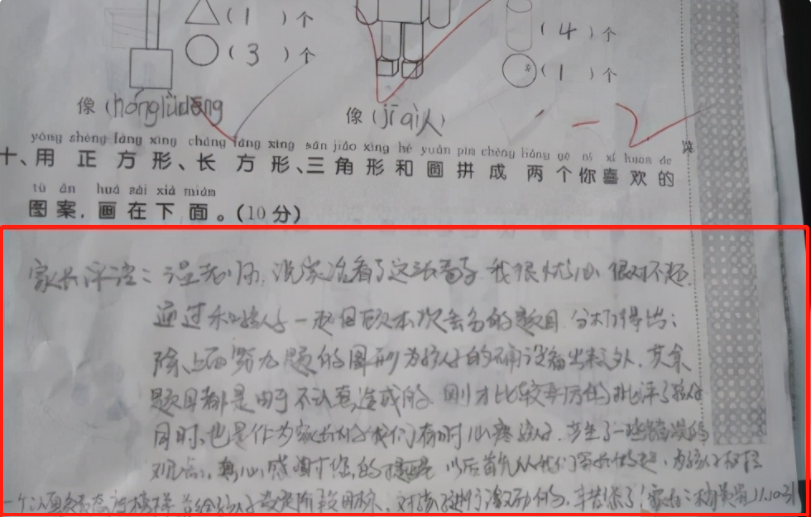 △(1)个
○(3)个
(4)个
(1)个
像(hónglǜdēng
像(jīqì人)
-2
yòng zhèng fāng xíng cháng fāng xíng sān jiǎo xíng hé yuán pīn chéng liǎng gè nǐ xǐ huan de
十、用正方形、长方形、三角形和圆拼成两个你喜欢的
tú àn huà zài xià miàn
图案,画在下面。(10分)
家长评语:老师,看了这张卷子我很忧心很对不起.
通过和孩子一起回顾本次丢分的题目分析得出:
除上面第九题的图形为孩子的 外,其余
题目都是由于不认真造成的.刚才比较严厉的批评了孩子
同时,也是作为家长的我们有时心疼孩子,产生了一些错误的
观点.衷心感谢您的提醒 以后首先从我们家长做起,为孩子树立
一个 榜样 给孩子 阶段目标,对孩子进行激励 辛苦了!家长: 11.10.31